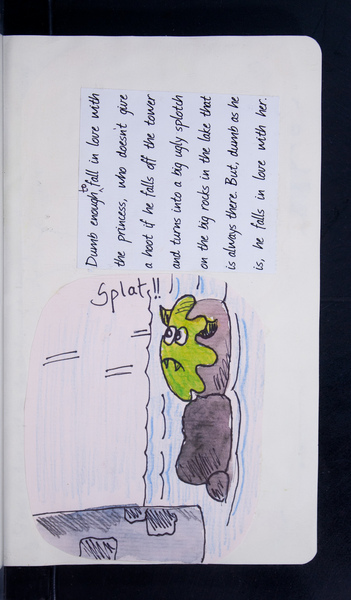 Dumb enough to fall in love with
the princess, who doesn't give
a hoot if he falls off the tower
and turns into a big ugly splotch
on the big rocks in the lake that
is always there. But, dumb as he
is, he falls in love with her.
Splat!!